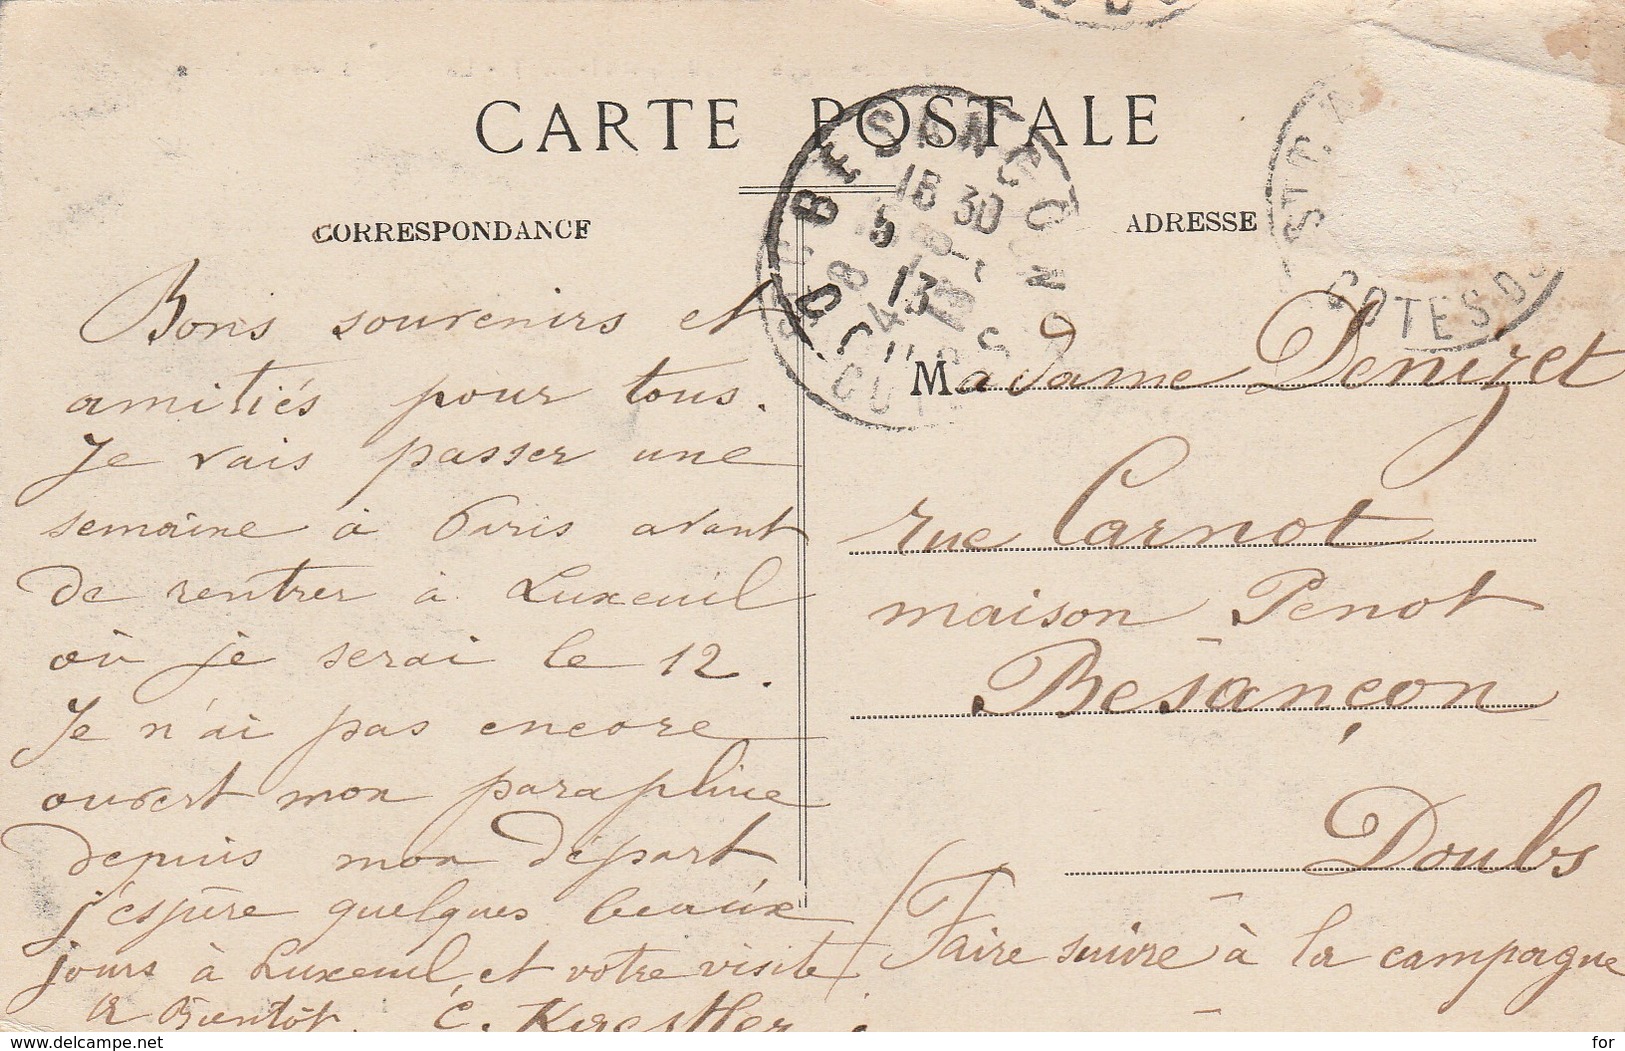 CARTE POSTALE
CORRESPONDANCE
Bons souvenirs et
amitiés pour tous.
Je vais passer une
semaine à Paris avant
de rentrer à Luxeuil
où je serai le 12.
Je n'ai pas encore
ouvert mon parapluie
depuis mon départ
j'espère quelques beaux
jours à Luxeuil, et votre visite
A Bientôt. C.
ADRESSE
BESANCON
16 30
8
13
DOUBS
COTES DU
Madame Denizet
rue Carnot
maison Penot
Besançon
Doubs
(Faire suivre à la campagne
www.delcampe.net
for